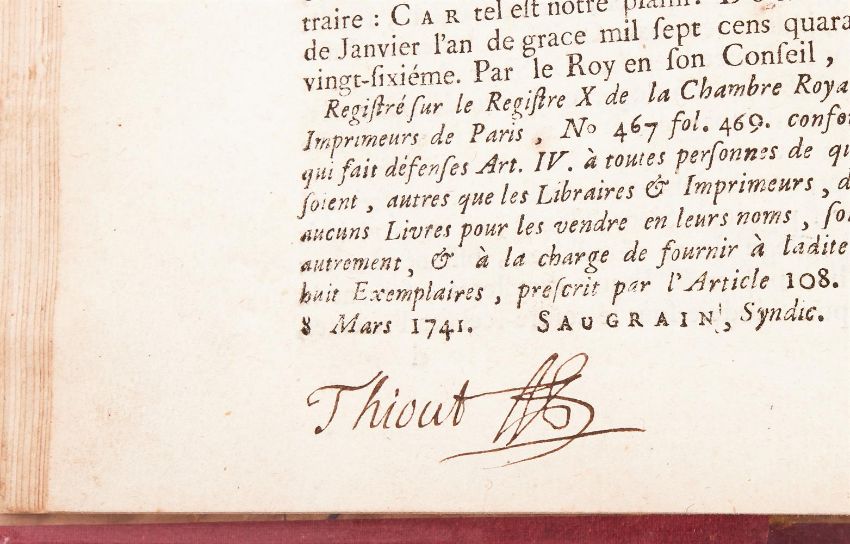 traire : CAR tel eſt notre plaiſir.
de Janvier l'an de grace mil ſept cens quara
vingt-ſixiéme. Par le Roy en ſon Conſeil ,
Regiſtré ſur le Regiſtre X de la Chambre Roya
Imprimeurs de Paris , No 467 fol. 469. confor
qui fait défenſes Art. IV. à toutes perſonnes de qu
ſoient , autres que les Libraires & Imprimeurs , d
aucuns Livres pour les vendre en leurs noms , ſo
autrement, & à la charge de fournir à ladite
huit Exemplaires , preſcrit par l'Article 108.
8 Mars 1741. SAUGRAIN, Syndic.
Thiout